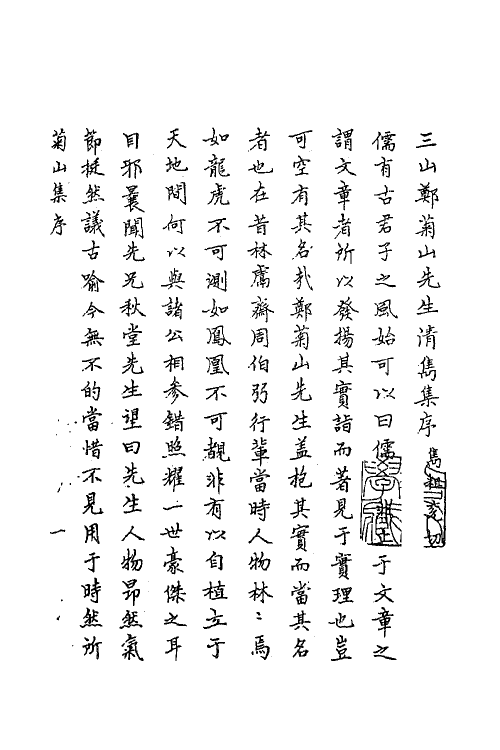 三山鄭菊山先生清雋集序 雋 切
儒有古君子之風始可以曰儒 于文章之
謂文章者所以發揚其實詣而著見于實理也豈
可空有其名哉鄭菊山先生盖抱其實而當其名
者也在昔林鬳齋周伯弜行輩當時人物林〻焉
如龍虎不可測如鳳凰不可覩非有以自植立于
天地間何以與諸公相參錯照耀一世豪傑之耳
目邪曩聞先兄秋堂先生望曰先生人物昂然氣
節挺然議古喻今無不的當惜不見用于時然所
菊山集序
一